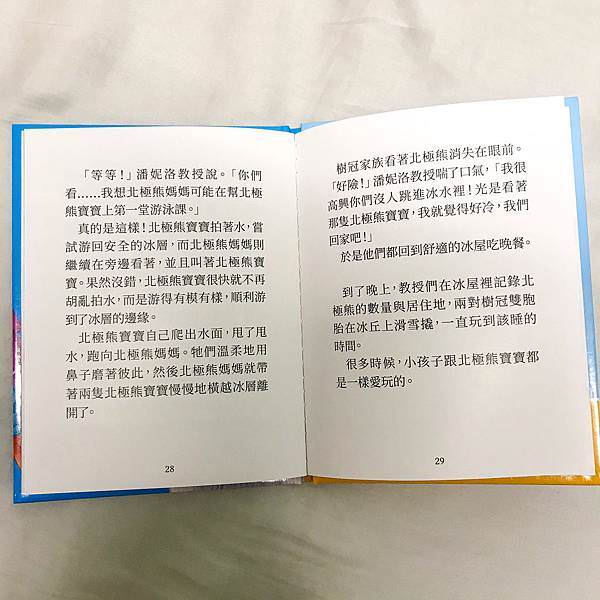 「等等！」潘妮洛教授說。「你們
看……我想北極熊媽媽可能在幫北極
熊寶寶上第一堂游泳課。」
真的是這樣！北極熊寶寶拍著水，嘗
試游回安全的冰層，而北極熊媽媽則
繼續在旁邊看著，並且叫著北極熊寶
寶。果然沒錯，北極熊寶寶很快就不再
胡亂拍水，而是游得有模有樣，順利游
到了冰層的邊緣。
北極熊寶寶自己爬出水面，甩了甩
水，跑向北極熊媽媽。牠們溫柔地用
鼻子磨著彼此，然後北極熊媽媽就帶
著兩隻北極熊寶寶慢慢地橫越冰層離
開了。
28
樹冠家族看著北極熊消失在眼前。
「好險！」潘妮洛教授喘了口氣，「我很
高興你們沒人跳進冰水裡！光是看著
那隻北極熊寶寶，我就覺得好冷，我們
回家吧！」
於是他們都回到舒適的冰屋吃晚餐。
到了晚上，教授們在冰屋裡記錄北
極熊的數量與居住地，兩對樹冠雙胞
胎在冰丘上滑雪撬，一直玩到該睡的
時間。
很多時候，小孩子跟北極熊寶寶都
是一樣愛玩的。
29